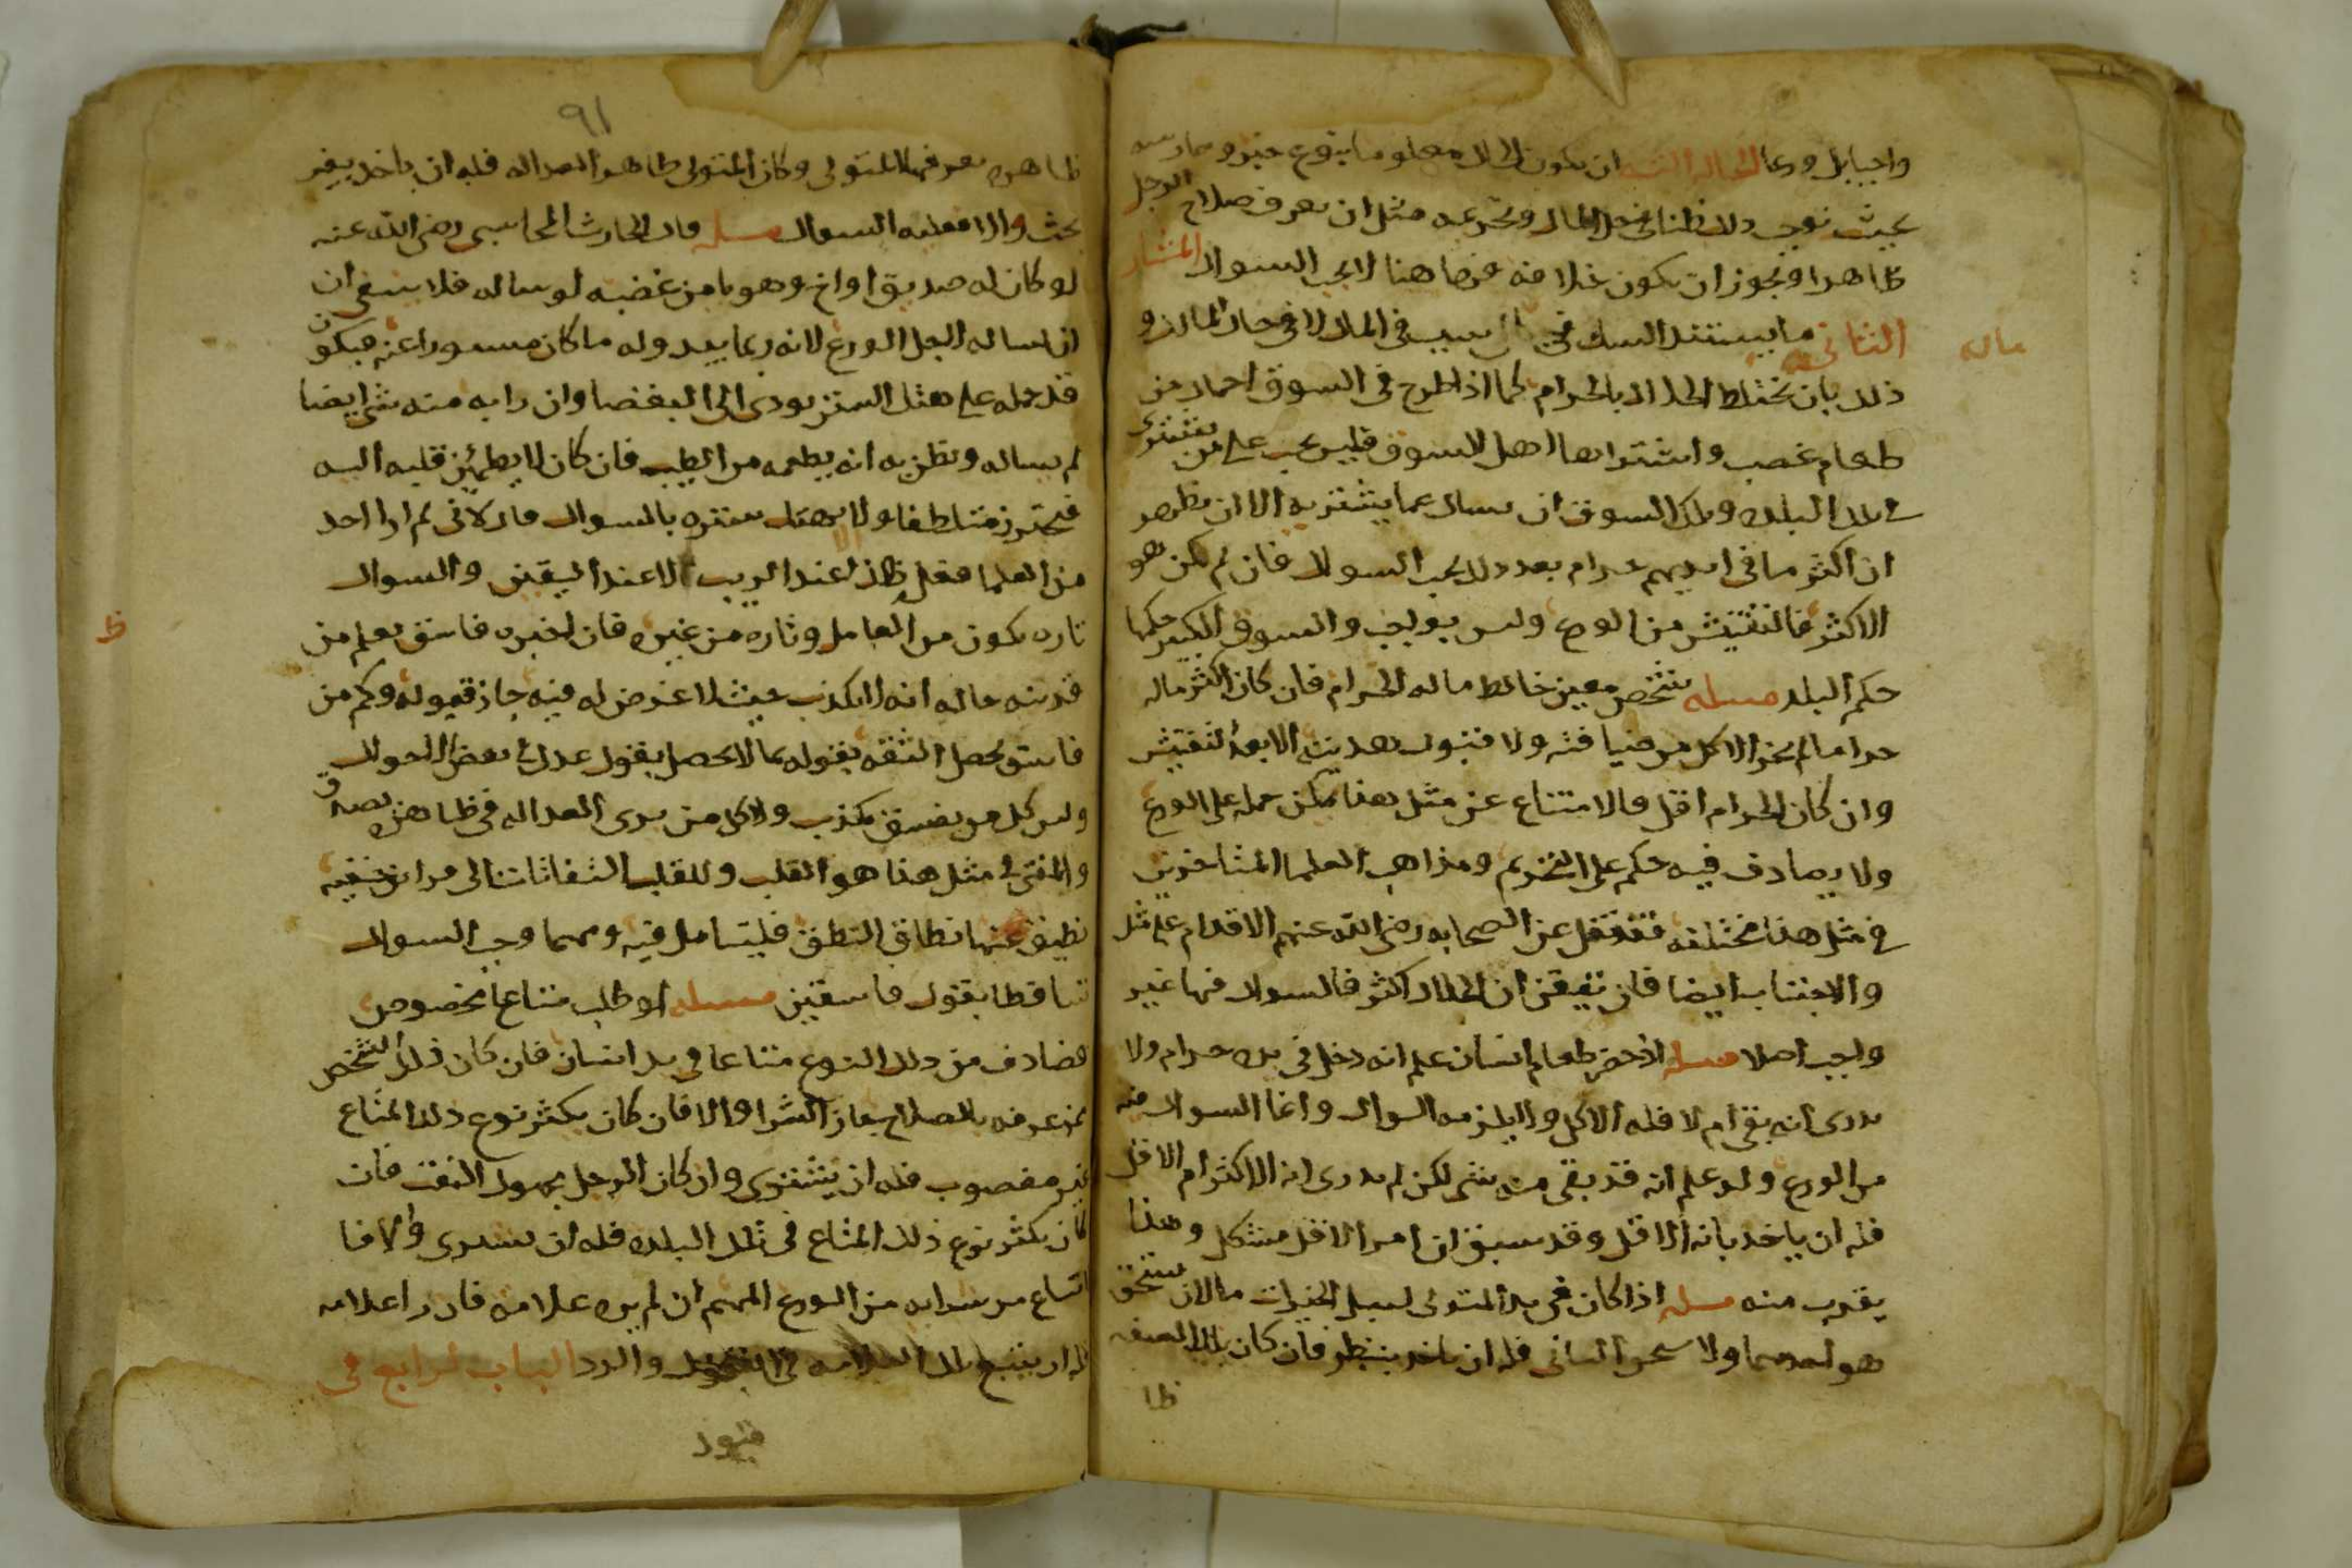 واجبا بل ورعا الحاله الثالثه ان يكون الحال معلوما بنوع خبره وممارسه
بحيث توجب ذلك ظنا في حل المال وتحريمه مثل ان يعرف صلاح الرجل
ظاهرا ويجوز ان يكون خلافه فهاهنا لا يجب السوال المثار
الثاني ما يستند الشك فيه الى سبب في المال لا في حال المالك و
ماله
ذلك بان يختلط الحلال بالحرام كما اذا طرح في السوق احمال من
طعام غصب واشتراها اهل السوق فليس يجب على من يشتري
في تلك البلده وتلك السوق ان يسال عما يشتريه الا ان يظهر
ان اكثر ما في ايديهم حرام بعد ذلك يجب السوال فان لم يكن هو
الاكثر فالتفتيش من الورع وليس بواجب والسوق الكبير حكمها
حكم البلد مسله شخص معين خالط ماله الحرام فان كان اكثر ماله
حراما لم يجز الاكل من ضيافته ولا قبول هديته الا بعد التفتيش
وان كان الحرام اقل فالامتناع عن مثل هذا يمكن حمله على الورع
ولا يصادف فيه حكم على التحريم ومذاهب العلما المتاخرين
في مثل هذا مختلفه فقد نقل عن الصحابه رضي الله عنهم الاقدام على مثل
والاجتناب ايضا فان تيقن ان الحلال اكثر فالسوال فيها غير
واجب اصلا مسله اذ حضر طعام انسان علم انه دخل في يده حرام ولا
يدري انه بقي ام لا فله الاكل ولا يلزمه السوال وانما السوال فيه
من الورع ولو علم انه قد بقي منه شي لكن لم يدري انه الاكثر ام الاقل
فله ان ياخذ بانه الاقل وقد سبق ان امر الاقل مشكل وهذا
يقرب منه مسله اذا كان في يد المتولي لسبل الخيرات مالان يستحق
هو احدهما ولا يستحق الثاني فله ان ياخذ ينظر فان كان تلك الصفه
ظا
٩١
ظاهره يعرفها المتولي وكان المتولي ظاهر العداله فله ان ياخذ بغير
بحث والا فعليه السوال مسله قال الحارث المحاسبي رضي الله عنه
لو كان له صديق او اخ وهو يامن غضبه لو ساله فلا ينبغي ان
ان يساله لاجل الورع لانه ربما يبدو له ما كان مستورا عنه فيكون
قد حمله على هتك الستر يودي الى البغضا وان رابه منه شي ايضا
لم يساله ويظن به انه يطعمه من الطيب فان كان لا يطمئن قلبه اليه
فيحترز متلطفا ولا يهتك ستره بالسوال قال لاني لم ار احد
من العلما فعل ذلك عند الريب الا عند اليقين والسوال
ظ
تاره يكون من العامل وتاره من غيره فان اخبره فاسق يعلم من
قرينه حاله انه لا يكذب حيث لا غرض له فيه جاز قبوله وكم من
فاسق يحصل الثقه بقوله بما لا يحصل بقول عدل في بعض الاحوال
وليس كل من يفسق يكذب ولا كل من يرى العداله في ظاهره يصدق
والمفتي في مثل هذا هو القلب وللقلب التفاتات الى قراين خفيه
يضيق عنها نطاق النطق فليتامل فيه ومهما وجب السوال
تساقطا بقول فاسقين مسله لو طلب متاعا مخصوص
فصادف من ذلك النوع متاعا في يد انسان فان كان ذلك الشخص
ممن عرفه بالصلاح جاز الشرا والا فان كان يكثر نوع ذلك المتاع
غير مغصوب فله ان يشتري وان كان الرجل مجهول الثقه فان
كان يكثر نوع ذلك المتاع في تلك البلده فله ان يشتري والا فا
امتناع من شرايه من الورع المهم ان لم يره علامه فان را علامه
فله ان يتبع تلك العلامه في القبول والرد الباب الرابع في
قبول